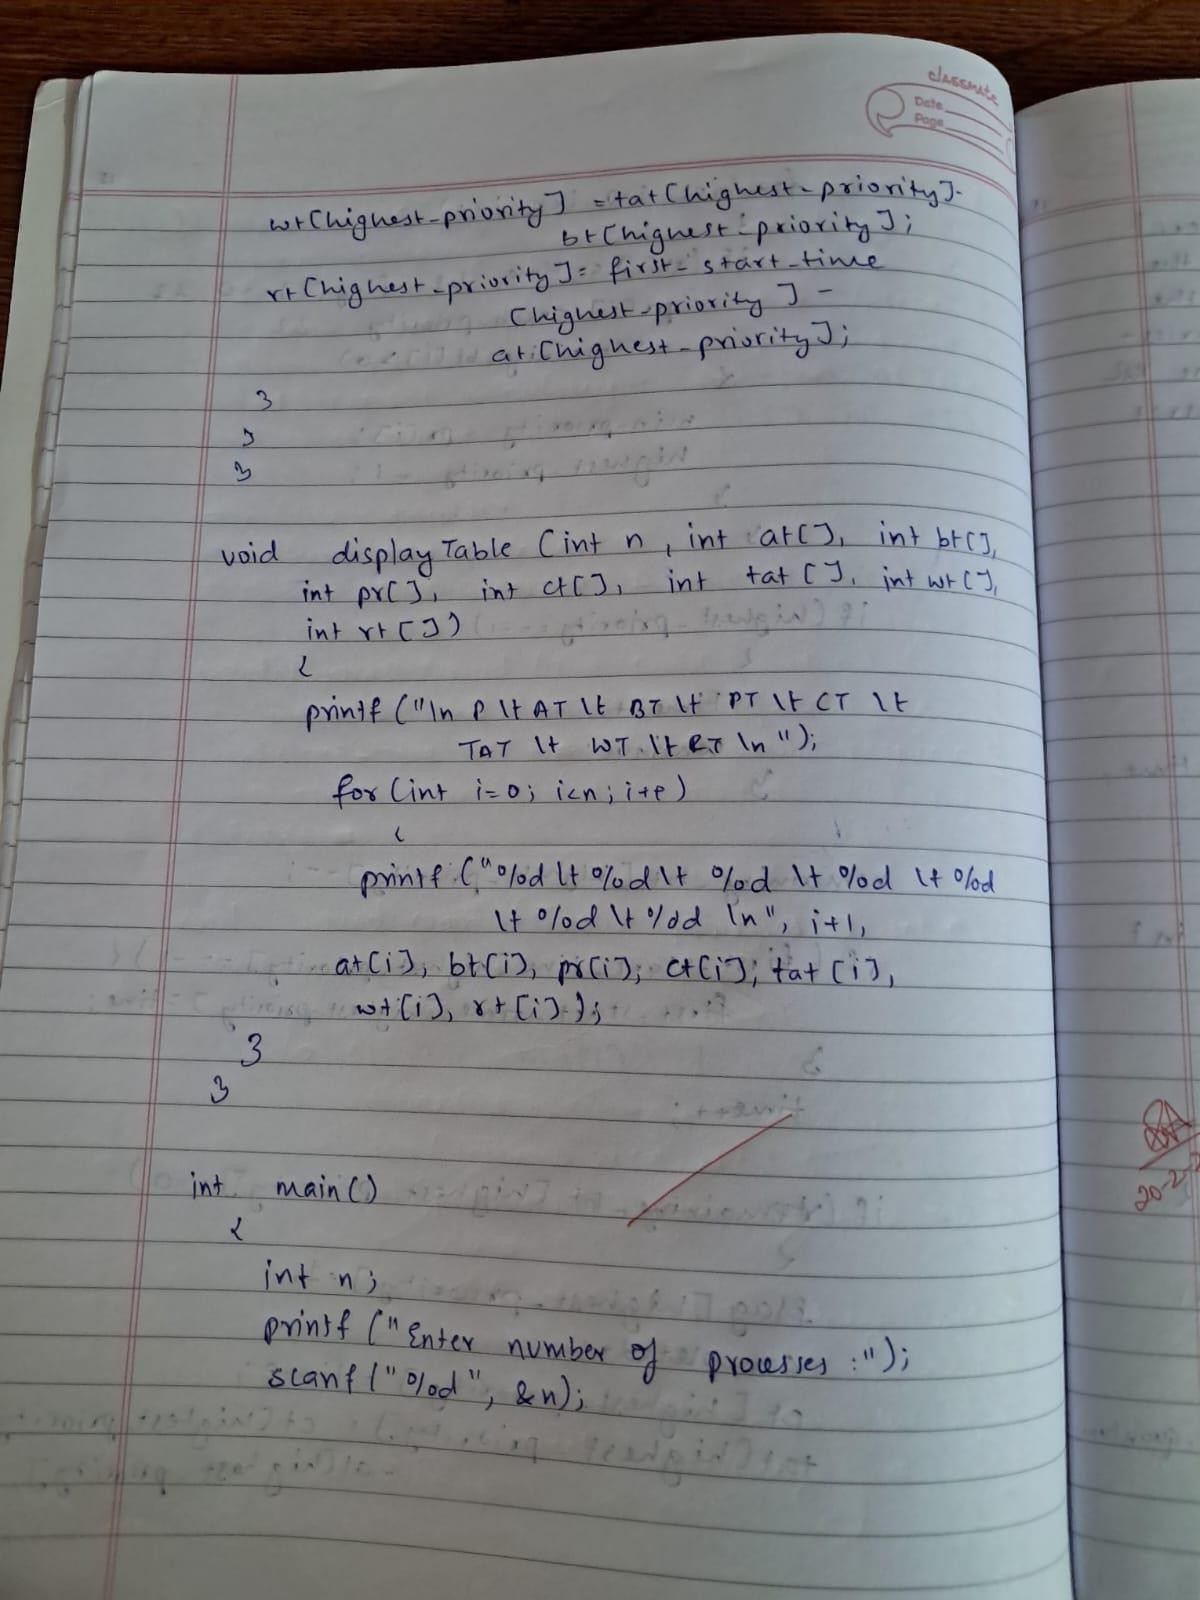 classmate
Date
Page
wt[highest-priority] = tat[highest-priority]-
bt[highest-priority];
rt[highest-priority]= first-start-time
[highest-priority] -
at[highest-priority];
}
}
}
void displayTable (int n, int at[], int bt[],
int pr[], int ct[], int tat[], int wt[],
int rt[])
{
printf ("\n P \t AT \t BT \t PT \t CT \t
TAT \t WT \t RT \n ");
for (int i=0; i<n; i++)
{
printf ("%d \t %d \t %d \t %d \t %d
\t %d \t %d \n", i+1,
at[i], bt[i], pr[i], ct[i], tat[i],
wt[i], rt[i]);
}
}
int main()
{
int n;
printf ("Enter number of processes :");
scanf ("%d", &n);